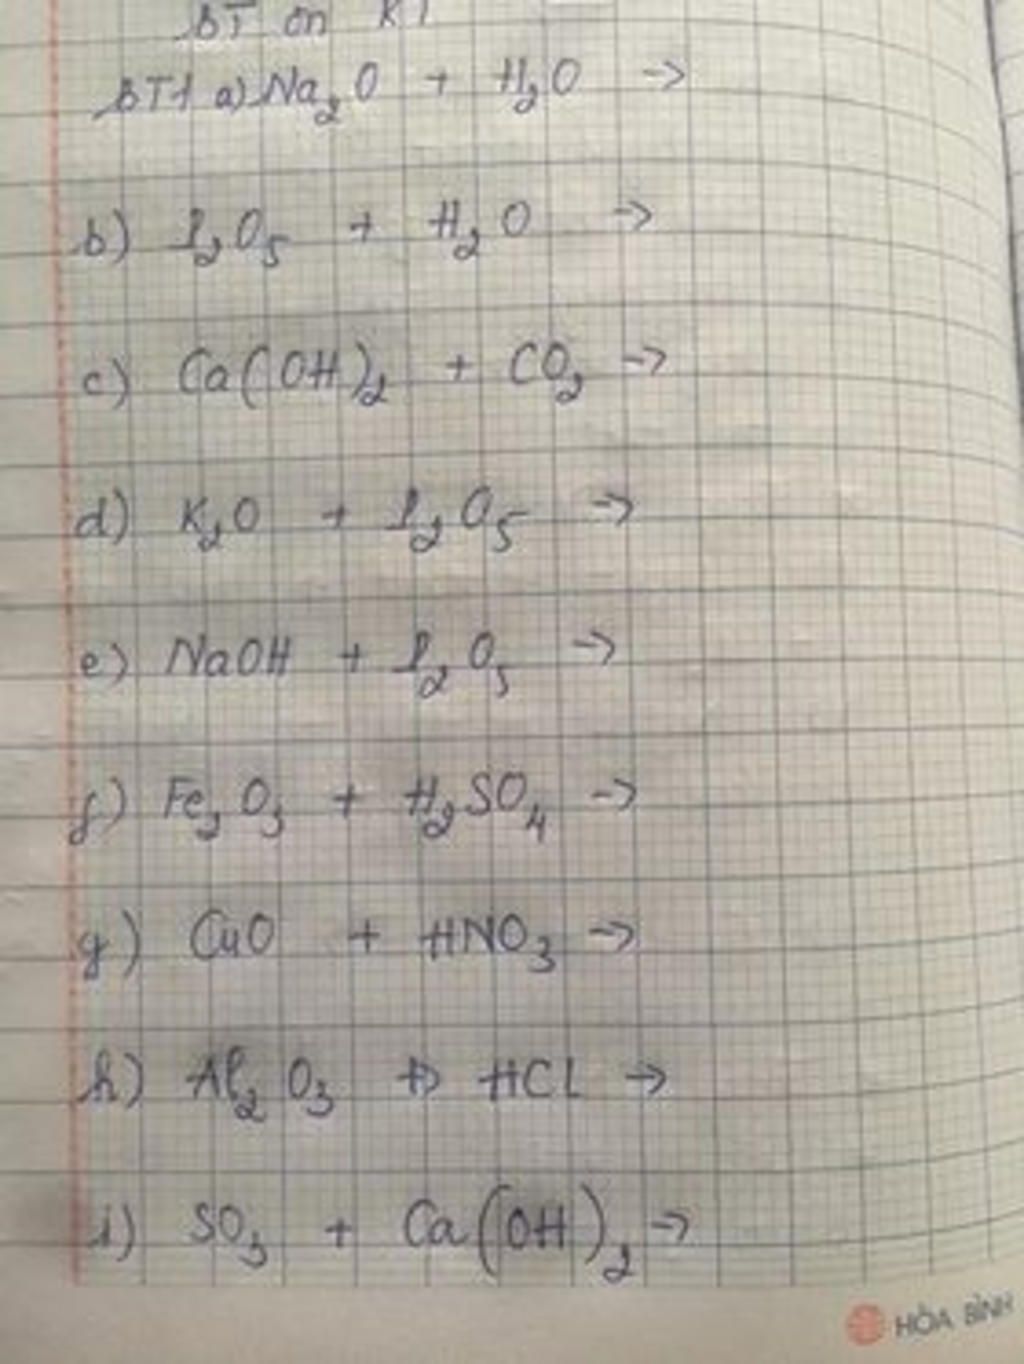 BT ôn KT
BT1 a) Na₂O + H₂O →
b) P₂O₅ + H₂O →
c) Ca(OH)₂ + CO₂ →
d) K₂O + P₂O₅ →
e) NaOH + P₂O₅ →
f) Fe₂O₃ + H₂SO₄ →
g) CuO + HNO₃ →
h) Al₂O₃ + HCL →
i) SO₃ + Ca(OH)₂ →
HÒA BÌNH